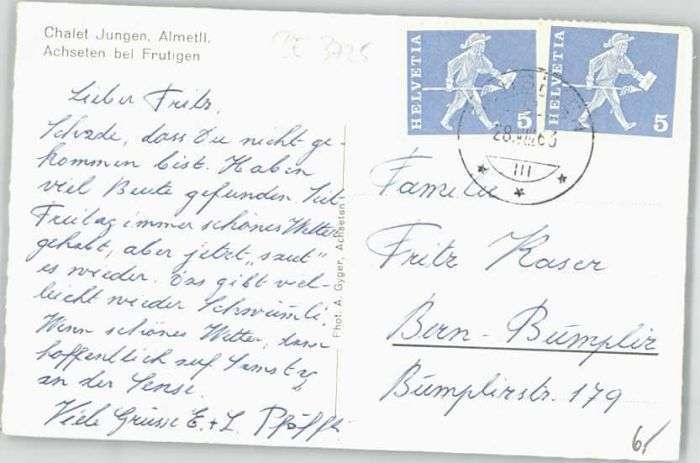 Chalet Jungen, Almetli.
Achseten bei Frutigen
HELVETIA
5
HELVETIA
5
28.VIII.63
III
Lieber Fritz,
Schade, dass Du nicht ge-
kommen bist. Haben
viel Beute gefunden. Seit
Freitag immer schönes Wetter
gehabt, aber jetzt „saut"
es wieder. Das gibt viel-
leicht wieder Schwümli.
Wenn schönes Wetter, dann
hoffentlich auf Samstag
an der Sense.
Viele Grüsse E. + L.
Phot: A. Gyger, Achseten
Familie
Fritz Kaser
Bern-Bümpliz
Bümplizstr. 179
6/